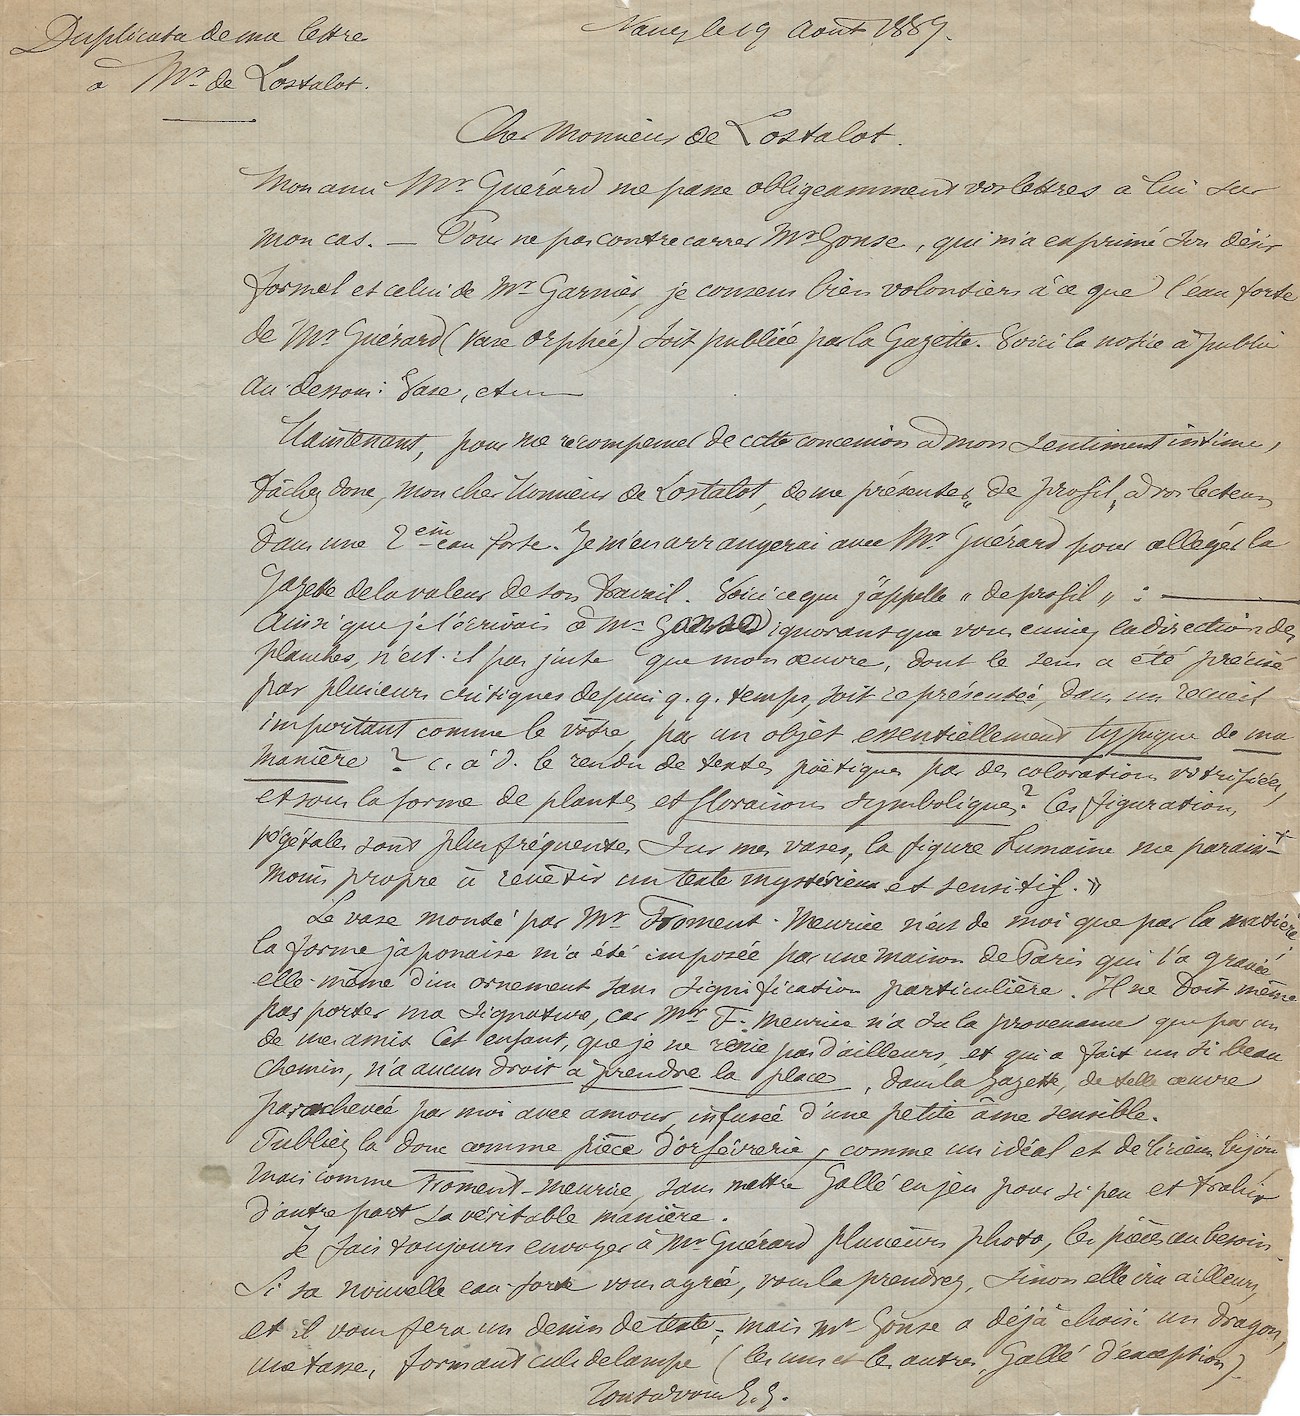 Duplicata de ma lettre
à Mr de Lostalot.
Nancy le 19 Août 1889.
Cher Monsieur de Lostalot.
Mon ami Mr Guérard me passe obligeamment vos lettres à lui sur
mon cas. — Pour ne pas contrecarrer Mr Gonse, qui m'a exprimé son désir
formel et celui de Mr Garnier, je consens bien volontiers à ce que l'eau forte
de Mr Guérard (vase Orphée) soit publiée par la Gazette. Voici la notice à publier
au-dessous : Vase, etc —
Maintenant, pour me récompenser de cette concession à mon sentiment intime,
tâchez donc, mon cher Monsieur de Lostalot, de me présenter „ de profil „ à vos lecteurs
dans une 2eme eau forte. Je m'en arrangerai avec Mr Guérard pour alléger la
Gazette de la valeur de son travail. Voici ce que j'appelle „ de profil „ : —
Ainsi que je l'écrivais à Mr Gonse ignorant que vous eussiez la direction des
planches, n'est-il pas juste que mon œuvre, dont le sens a été précisé
par plusieurs critiques depuis q.q. temps, soit représentée, dans un recueil
important comme le vôtre, par un objet essentiellement typique de ma
manière ? c. à d. le rendu de textes poëtiques par des colorations vitrifiées,
et sous la forme de plantes et floraisons symboliques ? Ces figurations
végétales sont plus fréquentes sur mes vases, la figure humaine me paraissant
moins propre à revêtir un texte mystérieux et sensitif. »
Le vase monté par Mr Froment-Meurice n'est de moi que par la matière,
la forme japonaise m'a été imposée par une maison de Paris qui l'a gravée
elle-même d'un ornement sans signification particulière. Il ne doit même
pas porter ma signature, car Mr F. Meurice n'a su la provenance que par un
de mes amis. Cet enfant, que je ne renie pas d'ailleurs, et qui a fait un si beau
chemin, n'a aucun droit à prendre la place, dans la Gazette, de telle œuvre
parachevée par moi avec amour, infusée d'une petite âme sensible.
Publiez la donc comme pièce d'orfèvrerie, comme un idéal et délicieux bijou
mais comme Froment-Meurice, sans mettre Gallé en jeu pour si peu et trahir
d'autre part sa véritable manière.
Je fais toujours envoyer à Mr Guérard plusieurs photo, les pièces au besoin.
Si sa nouvelle eau-forte vous agrée, vous la prendrez, sinon elle ira ailleurs,
et il vous fera un dessin de texte ; mais Mr Gonse a déjà choisi un dragon,
une tasse, formant culs de lampe (les uns et les autres, Gallé d'exception).
Tout à vous E. G.